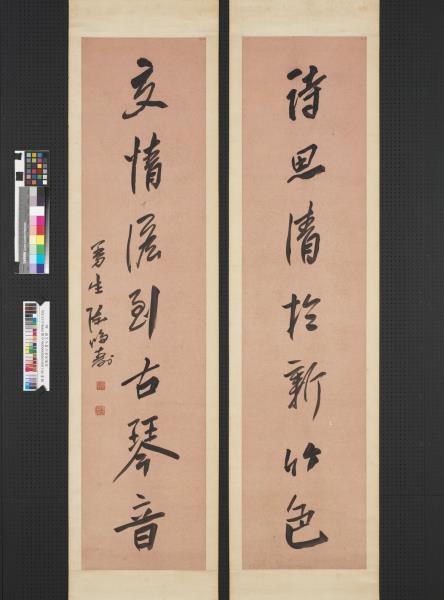 詩思清於新竹色
交情澹到古琴音
曼生陳鴻壽